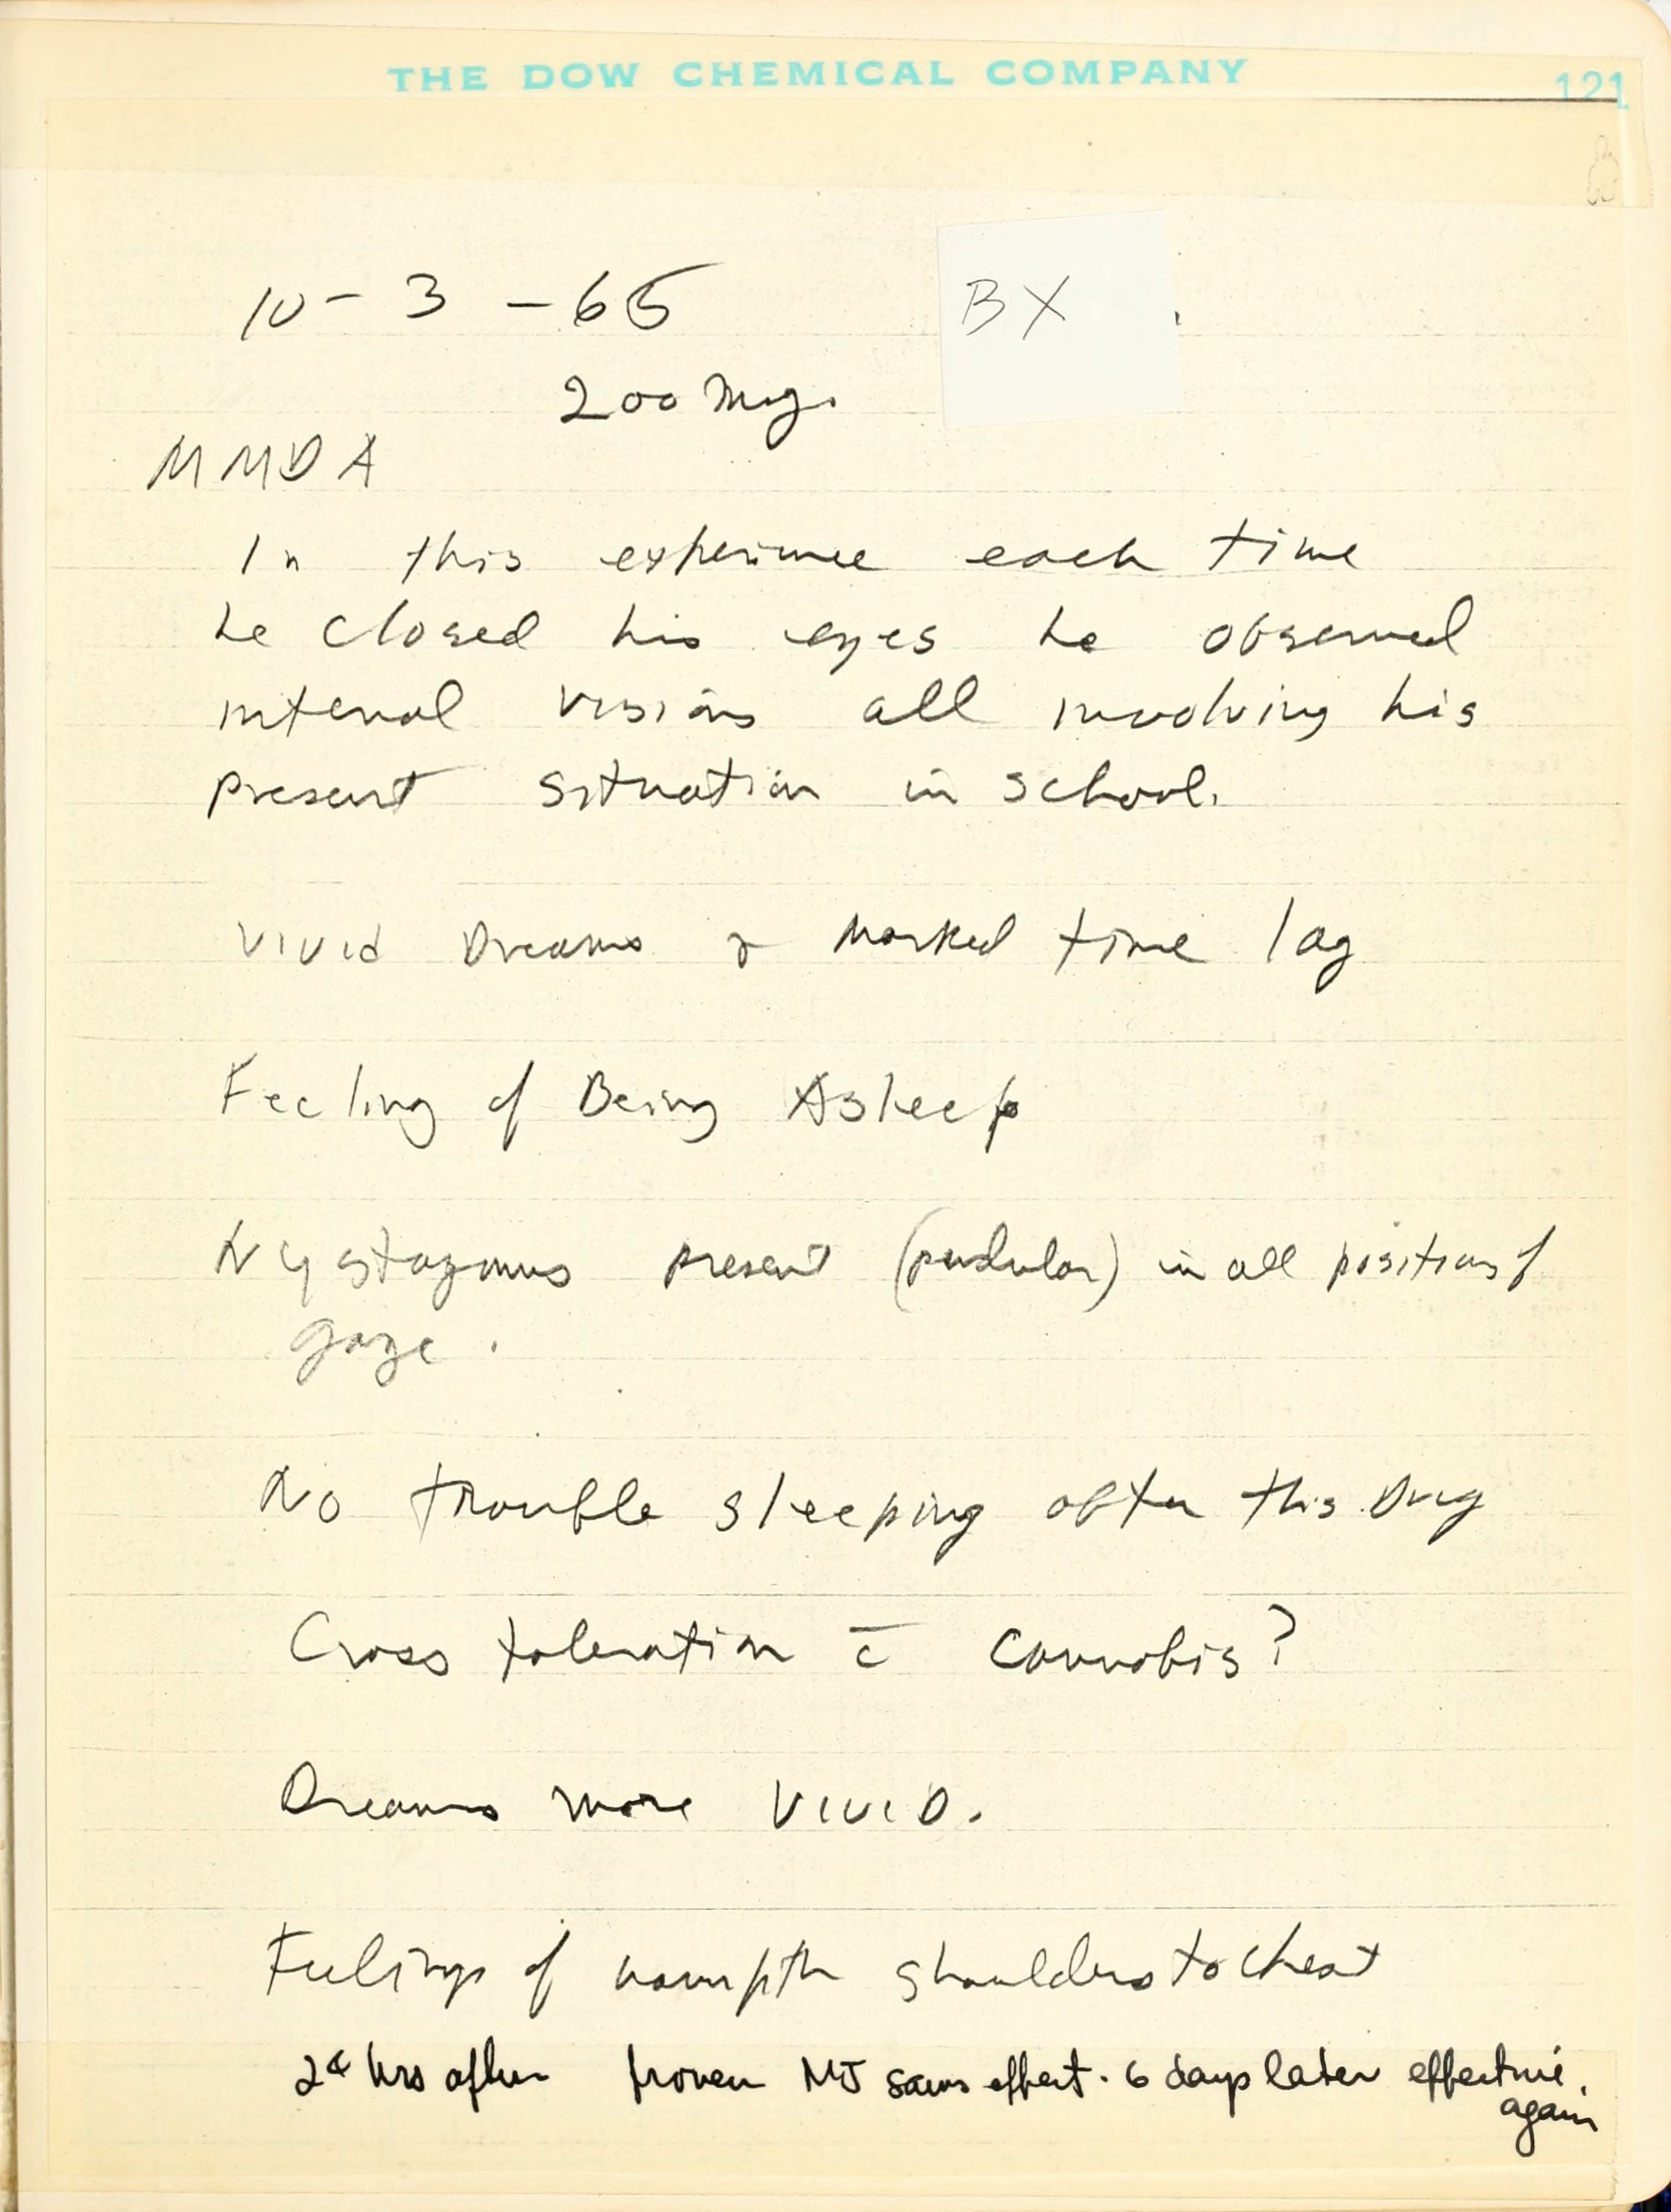 THE DOW CHEMICAL COMPANY 121
10-3-65 BX
200 mg.
MMDA
In this experience each time
he closed his eyes he observed
internal visions all involving his
present situation in school.
Vivid Dreams & marked time lag
Feeling of Being Asleep
Nystagmus present (pendular) in all positions of
gaze.
No trouble sleeping after this Drug
Cross toleration c̄ Cannabis?
Dreams more VIVID.
Feelings of warmpth shoulders to chest
24 hrs after proven MJ sans effect. 6 days later effective
again